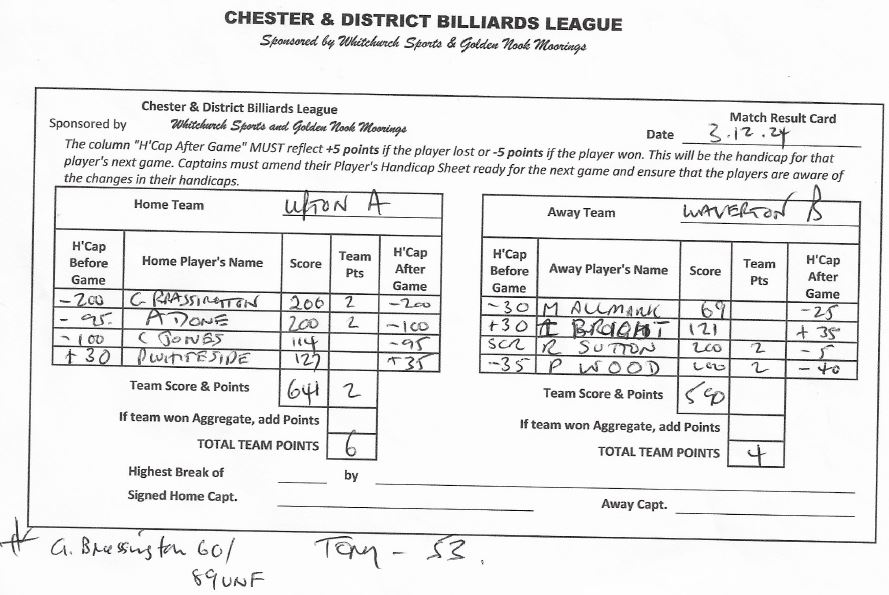 CHESTER & DISTRICT BILLIARDS LEAGUE
Sponsored by Whitchurch Sports & Golden Nook Moorings
Chester & District Billiards League
Match Result Card
Sponsored by Whitchurch Sports and Golden Nook Moorings
Date 3.12.24
The column "H'Cap After Game" MUST reflect +5 points if the player lost or -5 points if the player won. This will be the handicap for that
player's next game. Captains must amend their Player's Handicap Sheet ready for the next game and ensure that the players are aware of
the changes in their handicaps.
Home Team UPTON A
H'Cap Before Game Home Player's Name Score Team Pts H'Cap After Game
-200 G BRASSINGTON 200 2 -200
-95 A DONE 200 2 -100
-100 C JONES 114 -95
+30 P WHITESIDE 127 +35
Team Score & Points 641 2
If team won Aggregate, add Points
TOTAL TEAM POINTS 6
Away Team WAVERTON B
H'Cap Before Game Away Player's Name Score Team Pts H'Cap After Game
-30 M ALLMARK 69 -25
+30 BROUGHT 121 +35
SCR R SUTTON 200 2 -5
-35 P WOOD 200 2 -40
Team Score & Points 590
If team won Aggregate, add Points
TOTAL TEAM POINTS 4
Highest Break of by
Signed Home Capt. Away Capt.
G. Brassington 60/ Tony - 53.
89 UNF